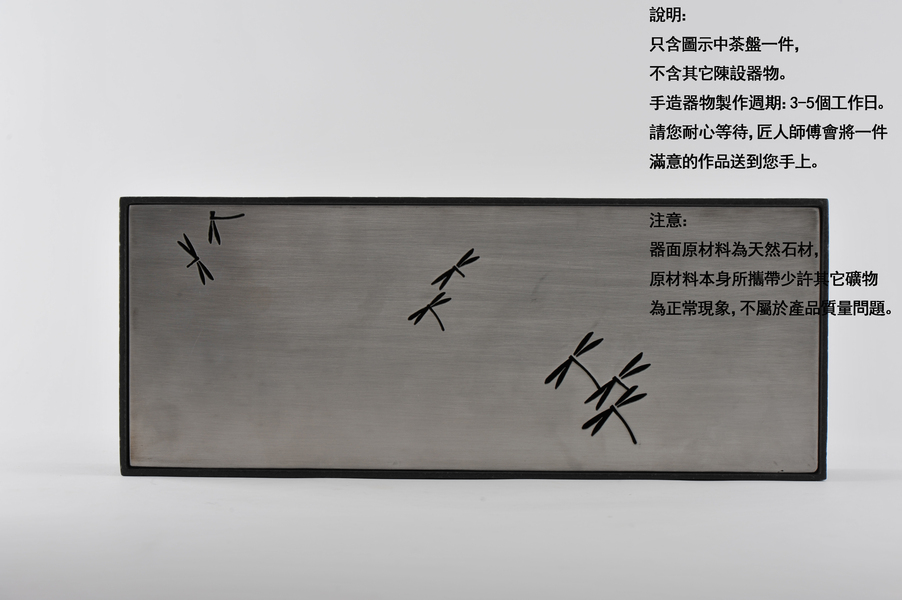 說明:
只含圖示中茶盤一件,
不含其它陳設器物。
手造器物製作週期: 3-5個工作日。
請您耐心等待, 匠人師傅會將一件
滿意的作品送到您手上。
注意:
器面原材料為天然石材,
原材料本身所攜帶少許其它礦物
為正常現象, 不屬於產品質量問題。